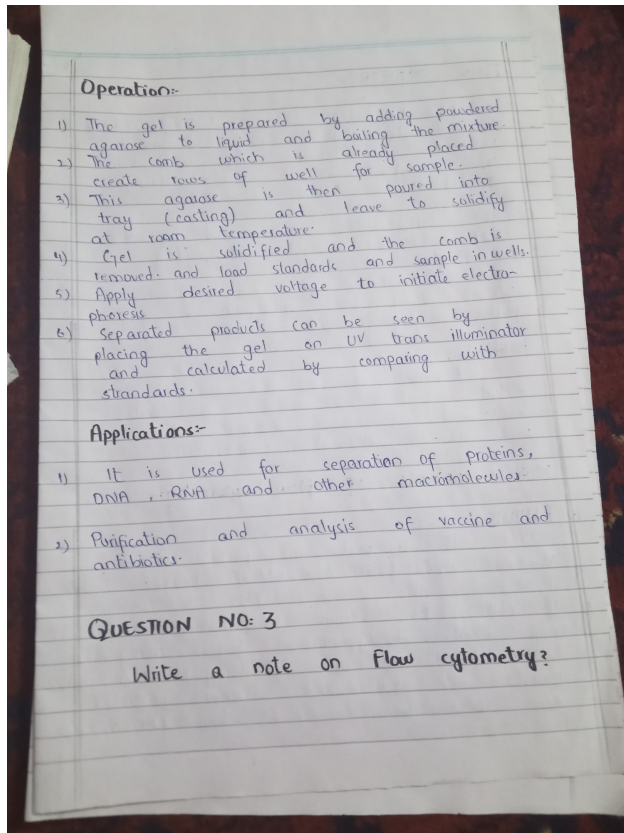 Operation:-
1) The gel is prepared by adding powdered
agarose to liquid and boiling the mixture.
2) The comb which is already placed
create rows of well for sample.
3) This agarose is then poured into
tray (casting) and leave to solidify
at room temperature.
4) Gel is solidified and the comb is
removed. and load standards and sample in wells.
5) Apply desired voltage to initiate electro-
phoresis
6) Separated products can be seen by
placing the gel on UV trans illuminator
and calculated by comparing with
strandards.
Applications:-
1) It is used for separation of proteins,
DNA, RNA and other macromolecules.
2) Purification and analysis of vaccine and
antibiotics.
QUESTION NO: 3
Write a note on Flow cytometry?